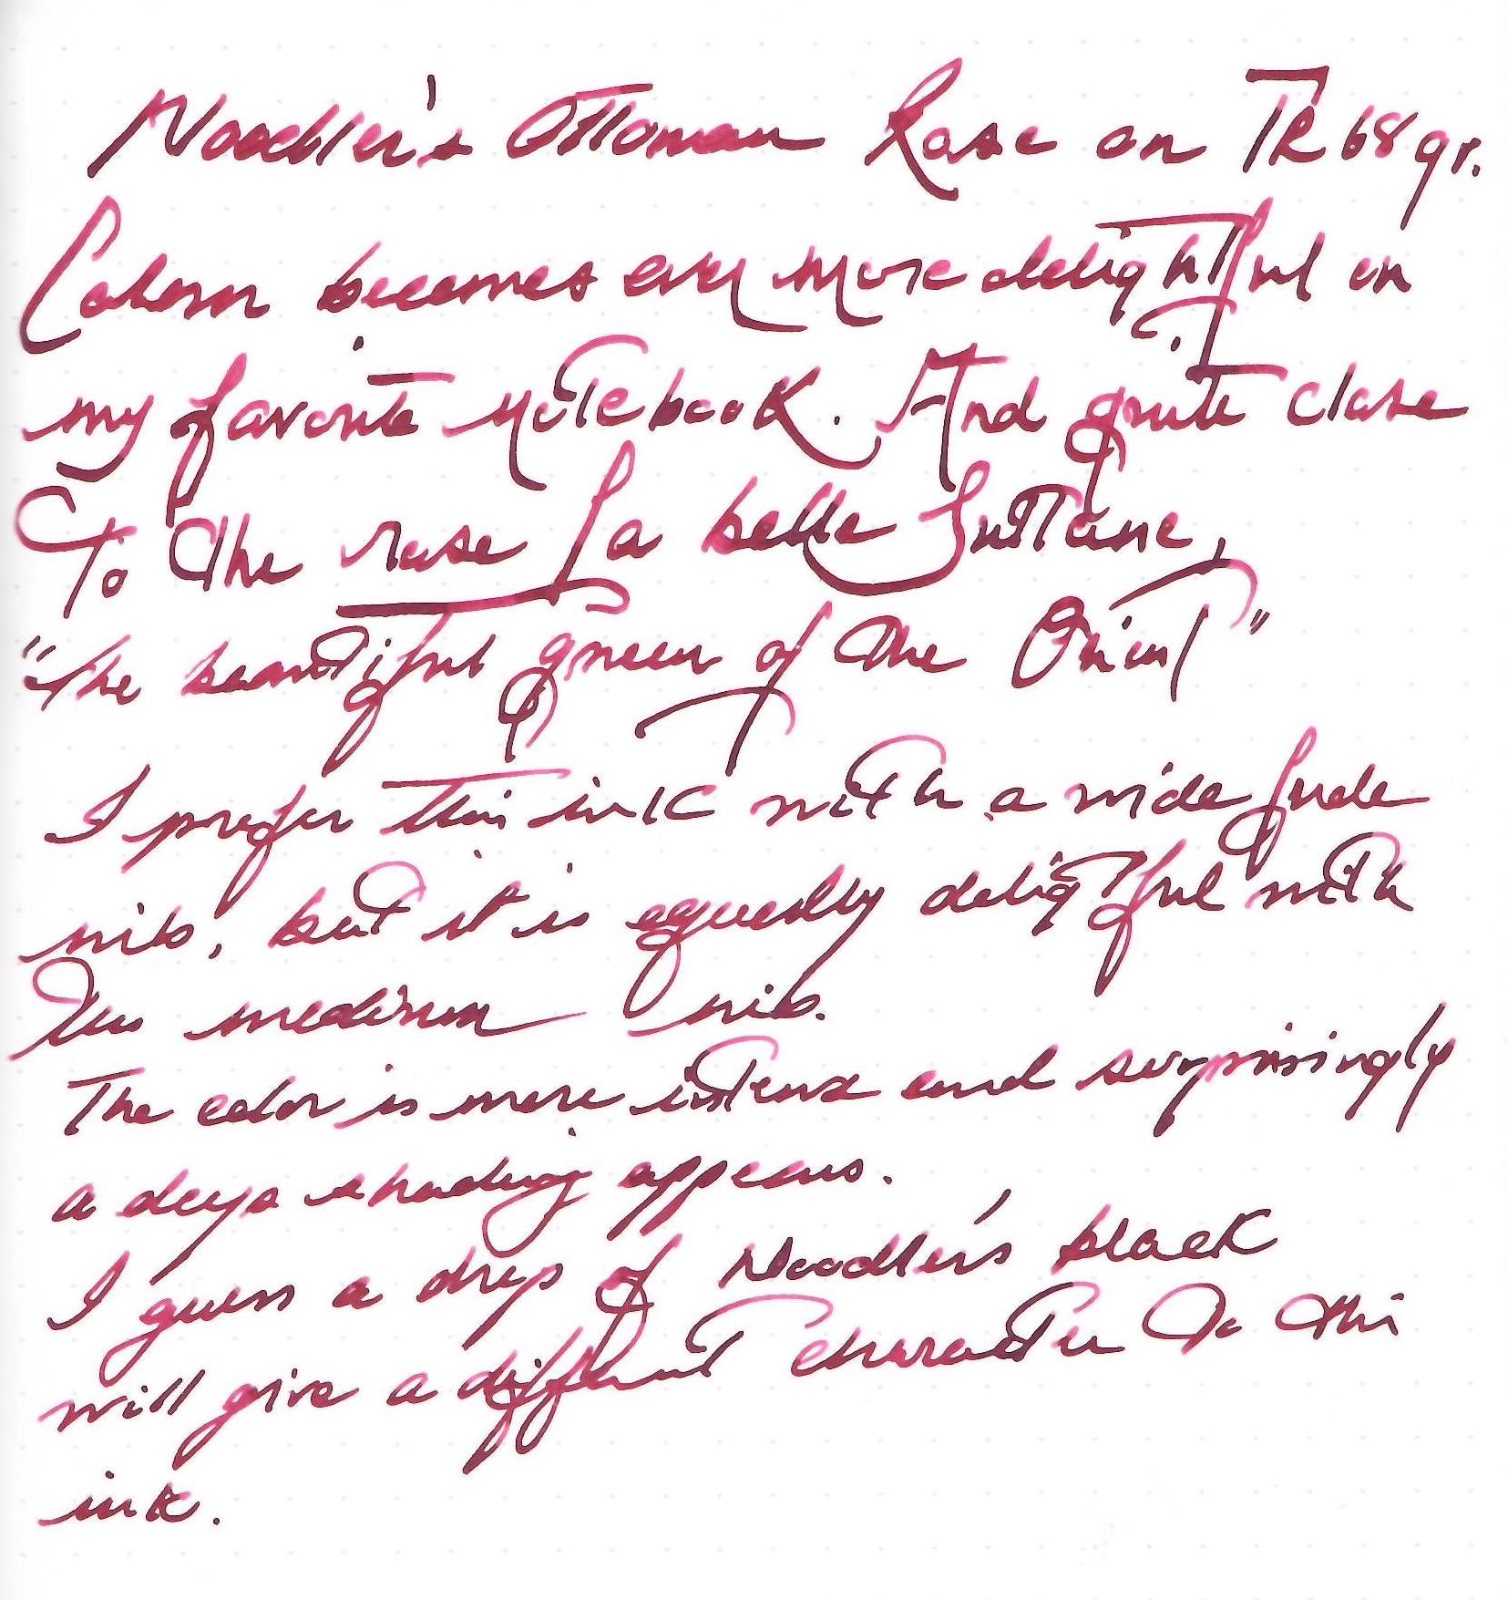 Noodler's Ottoman Rose on TR 68 gr.
Colour becomes even more delightful on
my favorite notebook. And quite close
to the rose La belle Sultane,
"the beautiful queen of the Orient"
I prefer this ink with a wide fude
nib, but it is equally delightful with
this medium nib.
The color is more intense and surprisingly
a deep shading appears.
I guess a drop of Noodler's black
will give a different character to this
ink.